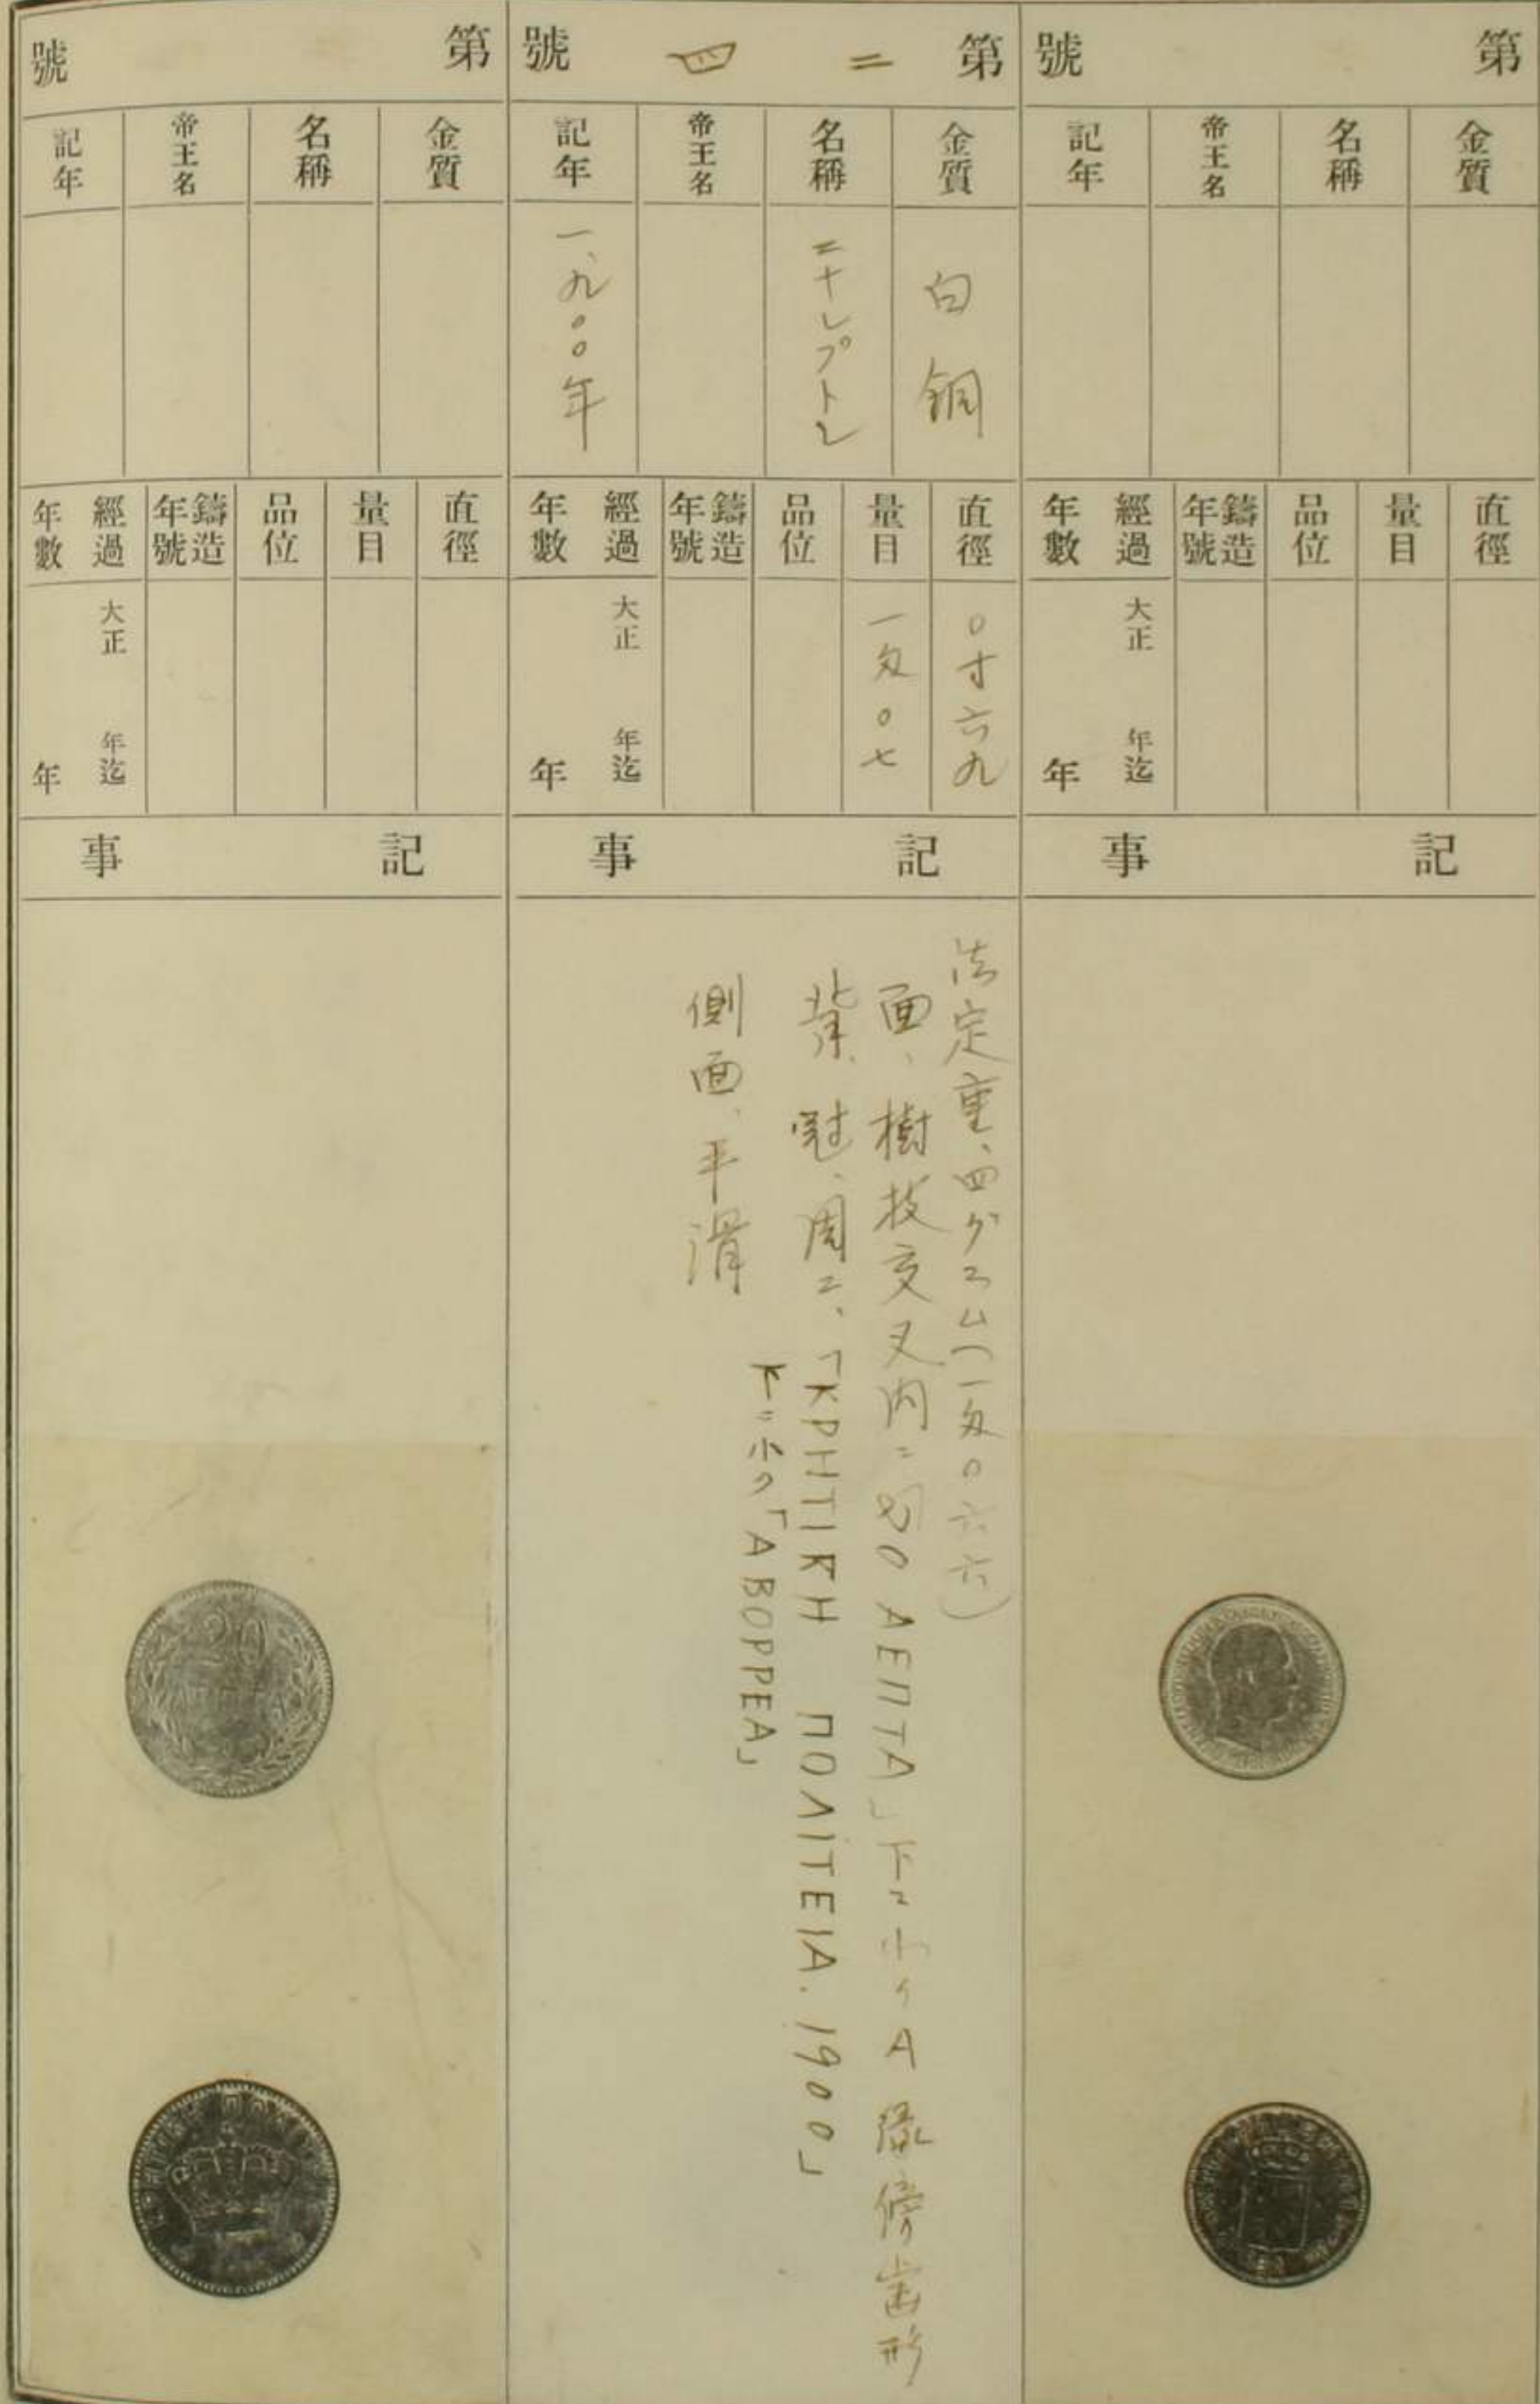 第 號
金質
名稱
帝王名
記年
直徑
量目
品位
鑄造年號
經過年數
大正 年迄
年
記事
第二四號
金質
白銅
名稱
二十レプトン
帝王名
記年
一、九〇〇年
直徑
〇寸六九
量目
一匁〇七
品位
鑄造年號
經過年數
大正 年迄
年
記事
法定重、四グラム(一匁〇六六)
面、樹枝交叉内ニ「20 ΛΕΠΤΑ」下ニ小クA 縁傍歯形
背、冠、周ニ、「ΚΡΗΤΙΚΗ ΠΟΛΙΤΕΙΑ. 1900」
下ニ小ク「A BORREA」
側面、平滑
第 號
金質
名稱
帝王名
記年
直徑
量目
品位
鑄造年號
經過年數
大正 年迄
年
記事
20